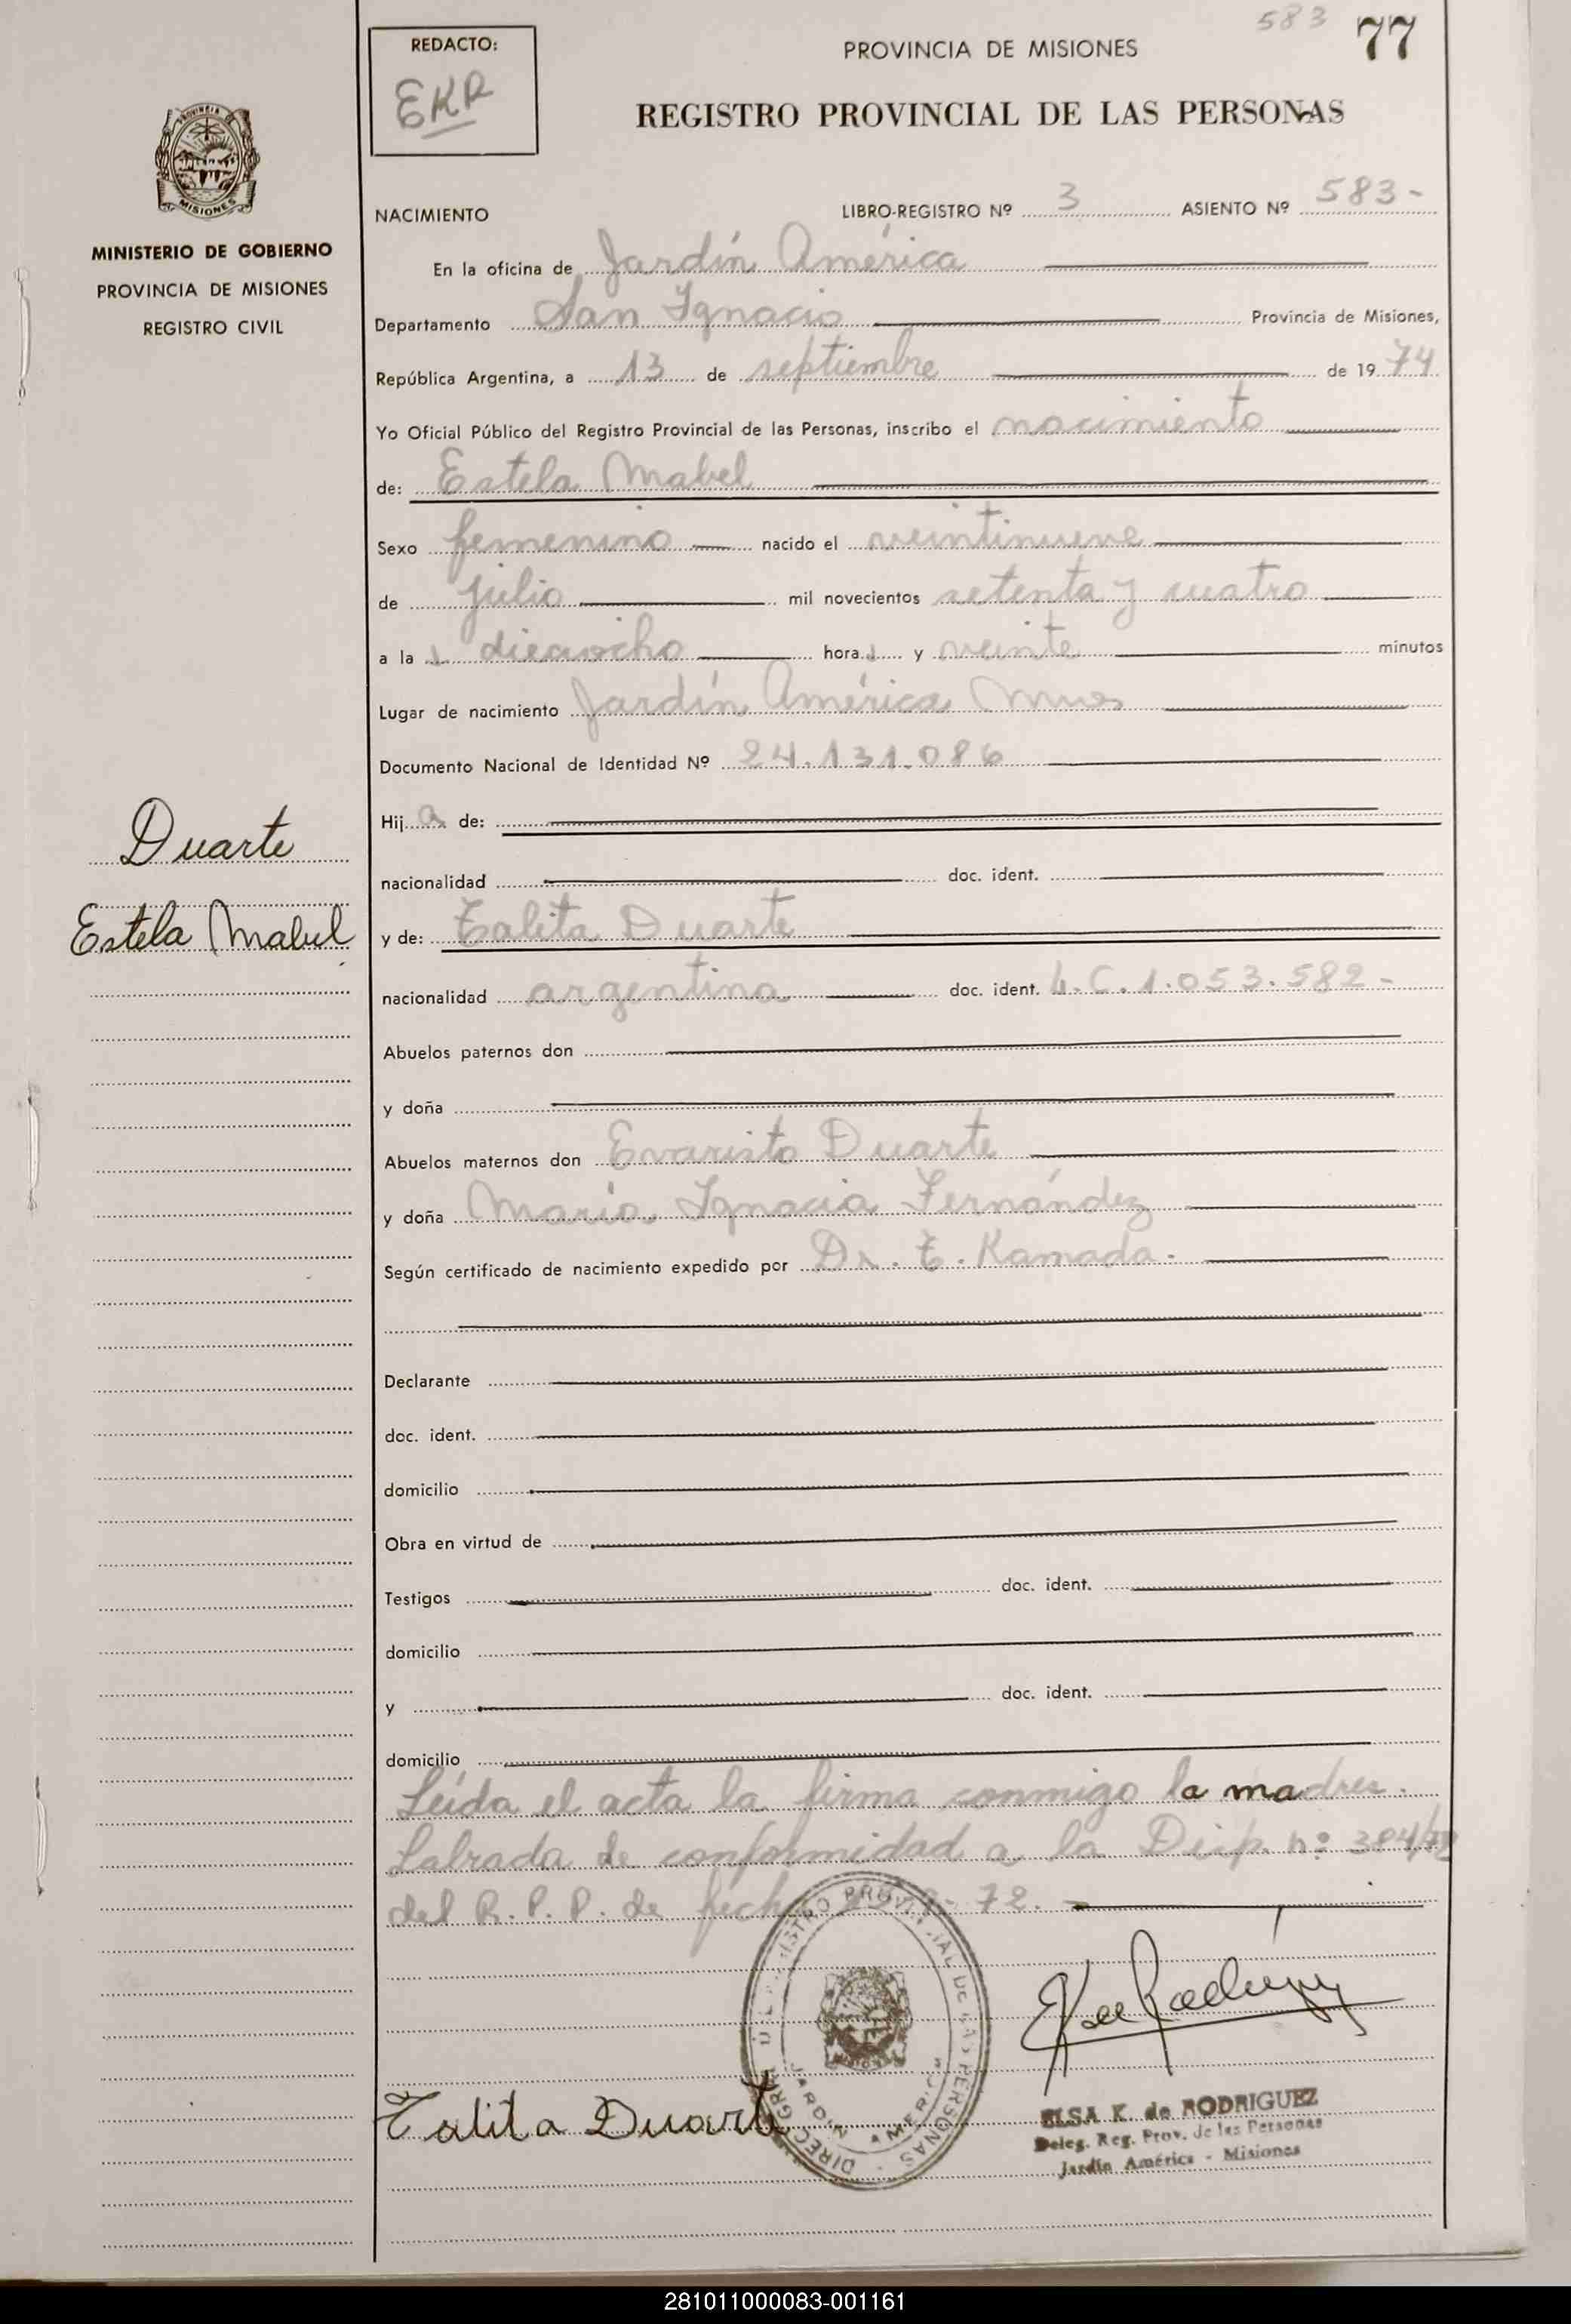 583 77
REDACTO:
EKR
PROVINCIA DE MISIONES
REGISTRO PROVINCIAL DE LAS PERSONAS
MISIONES
MINISTERIO DE GOBIERNO
PROVINCIA DE MISIONES
REGISTRO CIVIL
NACIMIENTO LIBRO-REGISTRO Nº 3 ASIENTO Nº 583-
En la oficina de Jardín América
Departamento San Ignacio Provincia de Misiones,
República Argentina, a 13 de septiembre de 1974
Yo Oficial Público del Registro Provincial de las Personas, inscribo el nacimiento
de: Estela Mabel
Sexo femenino nacido el veintinueve
de julio mil novecientos setenta y cuatro
a la s dieciocho hora s y veinte minutos
Lugar de nacimiento Jardín América Mnes
Documento Nacional de Identidad Nº 24.131.086
Duarte
Estela Mabel
Hija de:
nacionalidad doc. ident.
y de: Talita Duarte
nacionalidad argentina doc. ident. L.C.1.053.582-
Abuelos paternos don
y doña
Abuelos maternos don Evaristo Duarte
y doña María Ignacia Fernández
Según certificado de nacimiento expedido por Dr. T. Kamada.
Declarante
doc. ident.
domicilio
Obra en virtud de
Testigos doc. ident.
domicilio
y doc. ident.
domicilio
Leída el acta la firma conmigo la madre.
Labrada de conformidad a la Disp. nº 384/72
del R.P.P. de fecha 72.
JARDIN AMERICA
Talita Duarte
ELSA K. de RODRIGUEZ
Deleg. Reg. Prov. de las Personas
Jardín América - Misiones
281011000083-001161